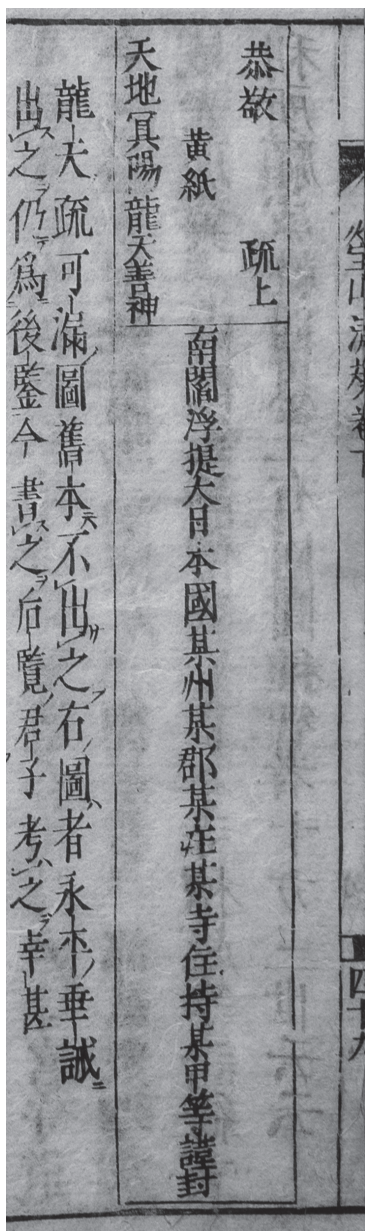 瑩山清規卷下
四十九
恭敬 疏上
黄紙
天地冥陽龍天善神
南閻浮提大日本國某州某郡某庄某寺住持某甲等謹封
龍天疏可滿圖舊本不出之右圖者永平垂誡
出之仍爲後鑒今書之后覽君子考之幸甚